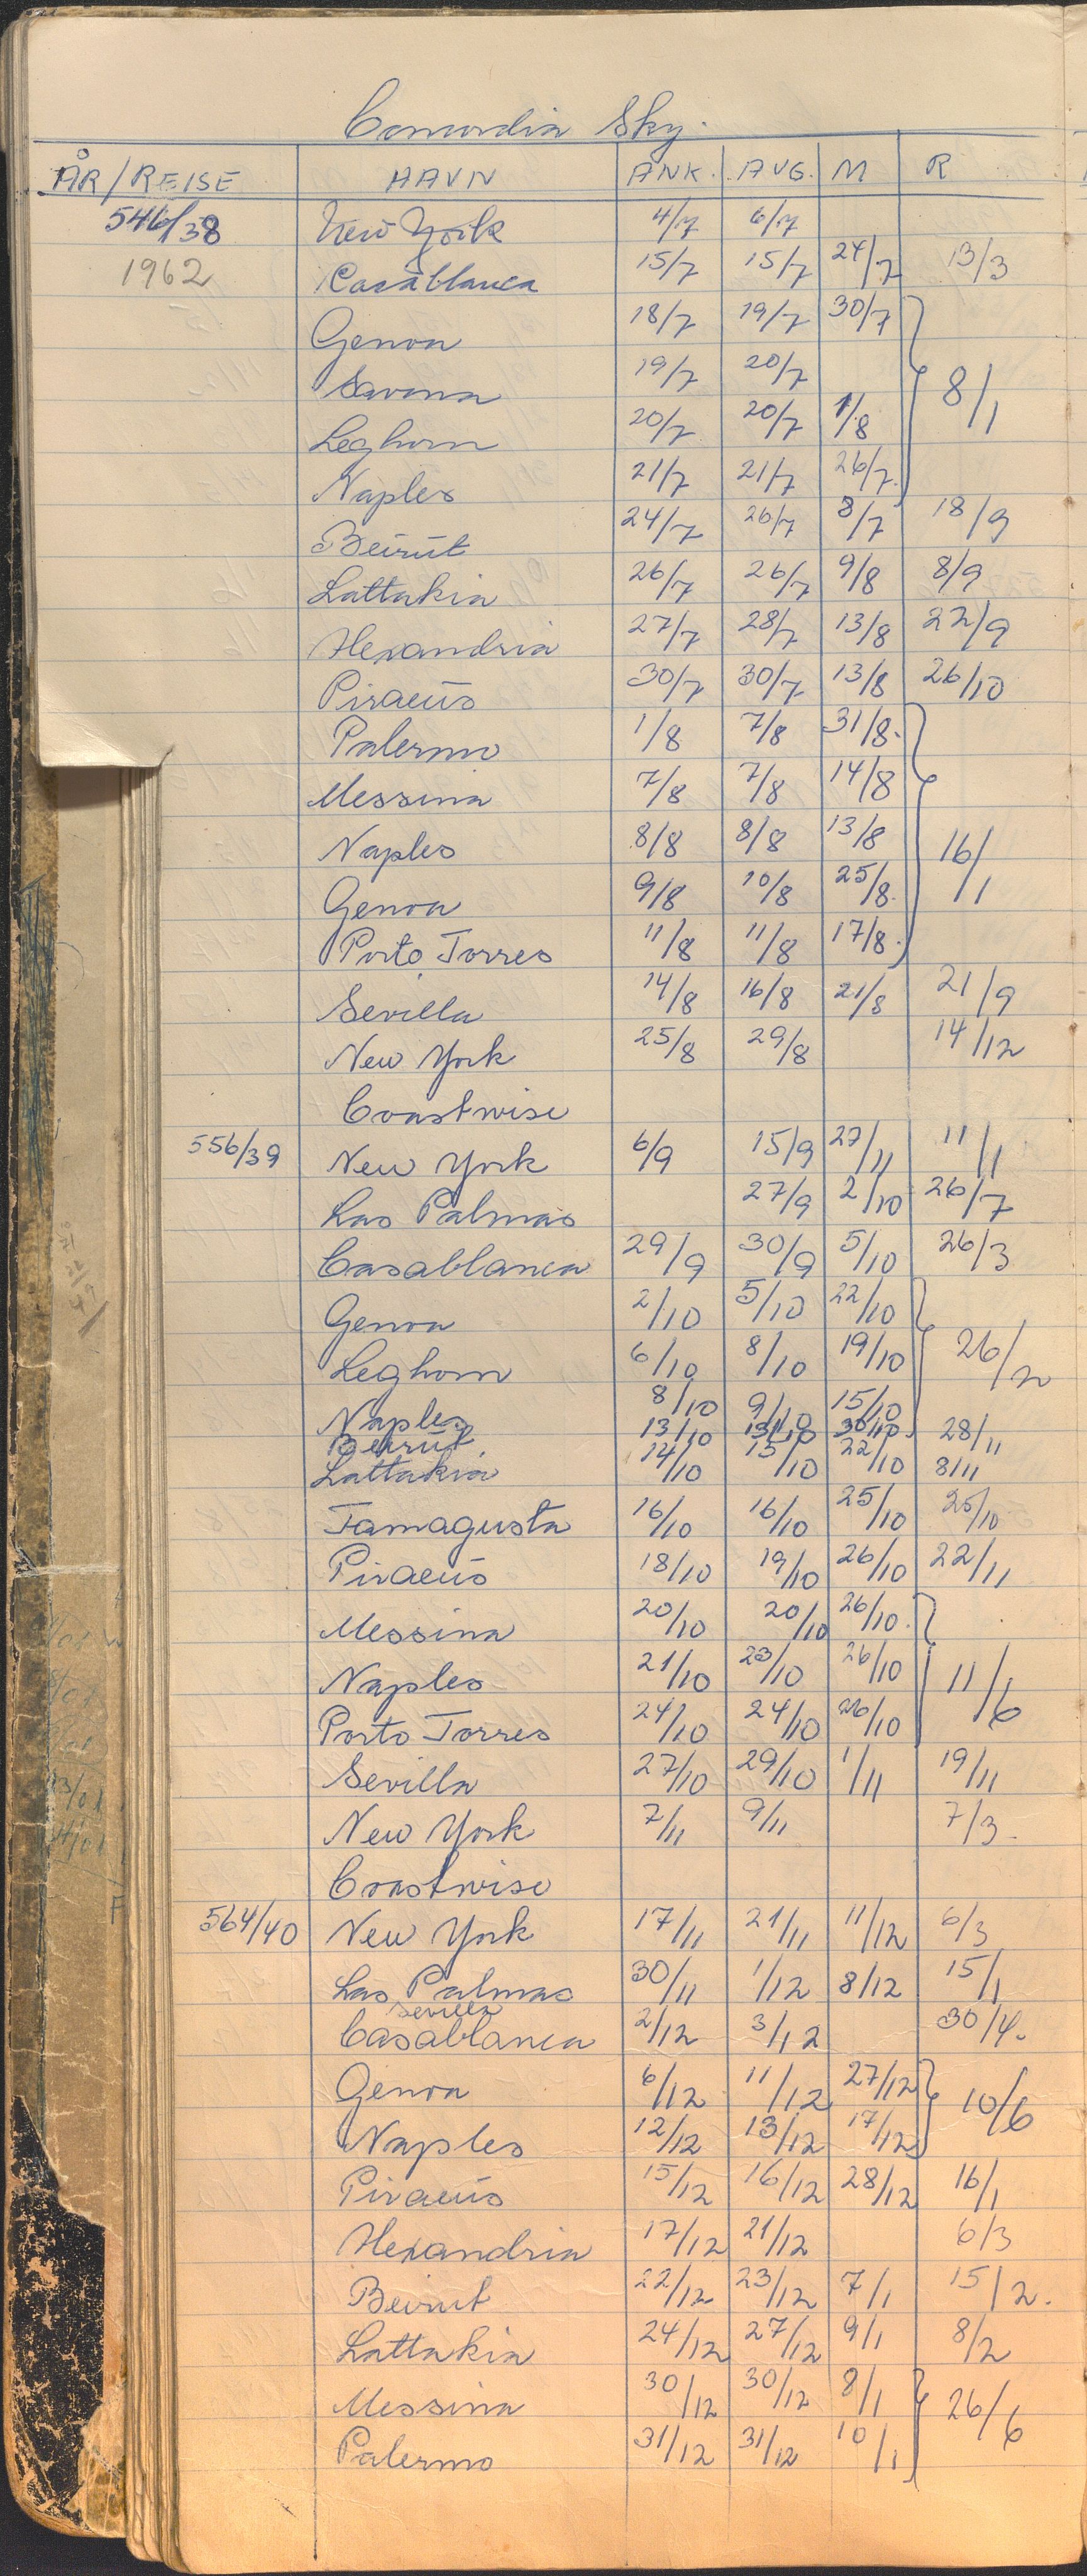 Concordia Sky.
ÅR/REISE HAVN ANK. AVG. M R
546/38 New York 4/7 6/7
1962 Casablanca 15/7 15/7 24/7 13/3
Genoa 18/7 19/7 30/7
Savona 19/7 20/7 8/1
Leghorn 20/7 20/7 1/8
Naples 21/7 21/7 26/7.
Beirut 24/7 26/7 8/7 18/9
Lattakia 26/7 26/7 9/8 8/9
Alexandria 27/7 28/7 13/8 22/9
Piraeus 30/7 30/7 13/8 26/10
Palermo 1/8 7/8 31/8.
Messina 7/8 7/8 14/8
Naples 8/8 8/8 13/8 16/1
Genoa 9/8 10/8 25/8.
Porto Torres 11/8 11/8 17/8.
Sevilla 14/8 16/8 21/8 21/9
New York 25/8 29/8 14/12
Coastwise
556/39 New York 6/9 15/9 27/11 11/1
Las Palmas 27/9 2/10 26/7
Casablanca 29/9 30/9 5/10 26/3
Genoa 2/10 5/10 22/10
Leghorn 6/10 8/10 19/10 26/2
Naples 8/10 9/10 15/10
Beirut 13/10 13/10 30/10 28/11
Lattakia 14/10 15/10 22/10 8/11
Famagusta 16/10 16/10 25/10 25/10
Piraeus 18/10 19/10 26/10 22/11
Messina 20/10 20/10 26/10.
Naples 21/10 23/10 26/10 11/6
Porto Torres 24/10 24/10 26/10
Sevilla 27/10 29/10 1/11 19/11
New York 7/11 9/11 7/3
Coastwise
564/40 New York 17/11 21/11 11/12 6/3
Las Palmas 30/11 1/12 8/12 15/1
Sevilla
Casablanca 2/12 3/12 30/4.
Genoa 6/12 11/12 27/12 10/6
Naples 12/12 13/12 17/12
Piraeus 15/12 16/12 28/12 16/1
Alexandria 17/12 21/12 6/3
Beirut 22/12 23/12 7/1 15/2.
Lattakia 24/12 27/12 9/1 8/2
Messina 30/12 30/12 8/1 26/6
Palermo 31/12 31/12 10/1